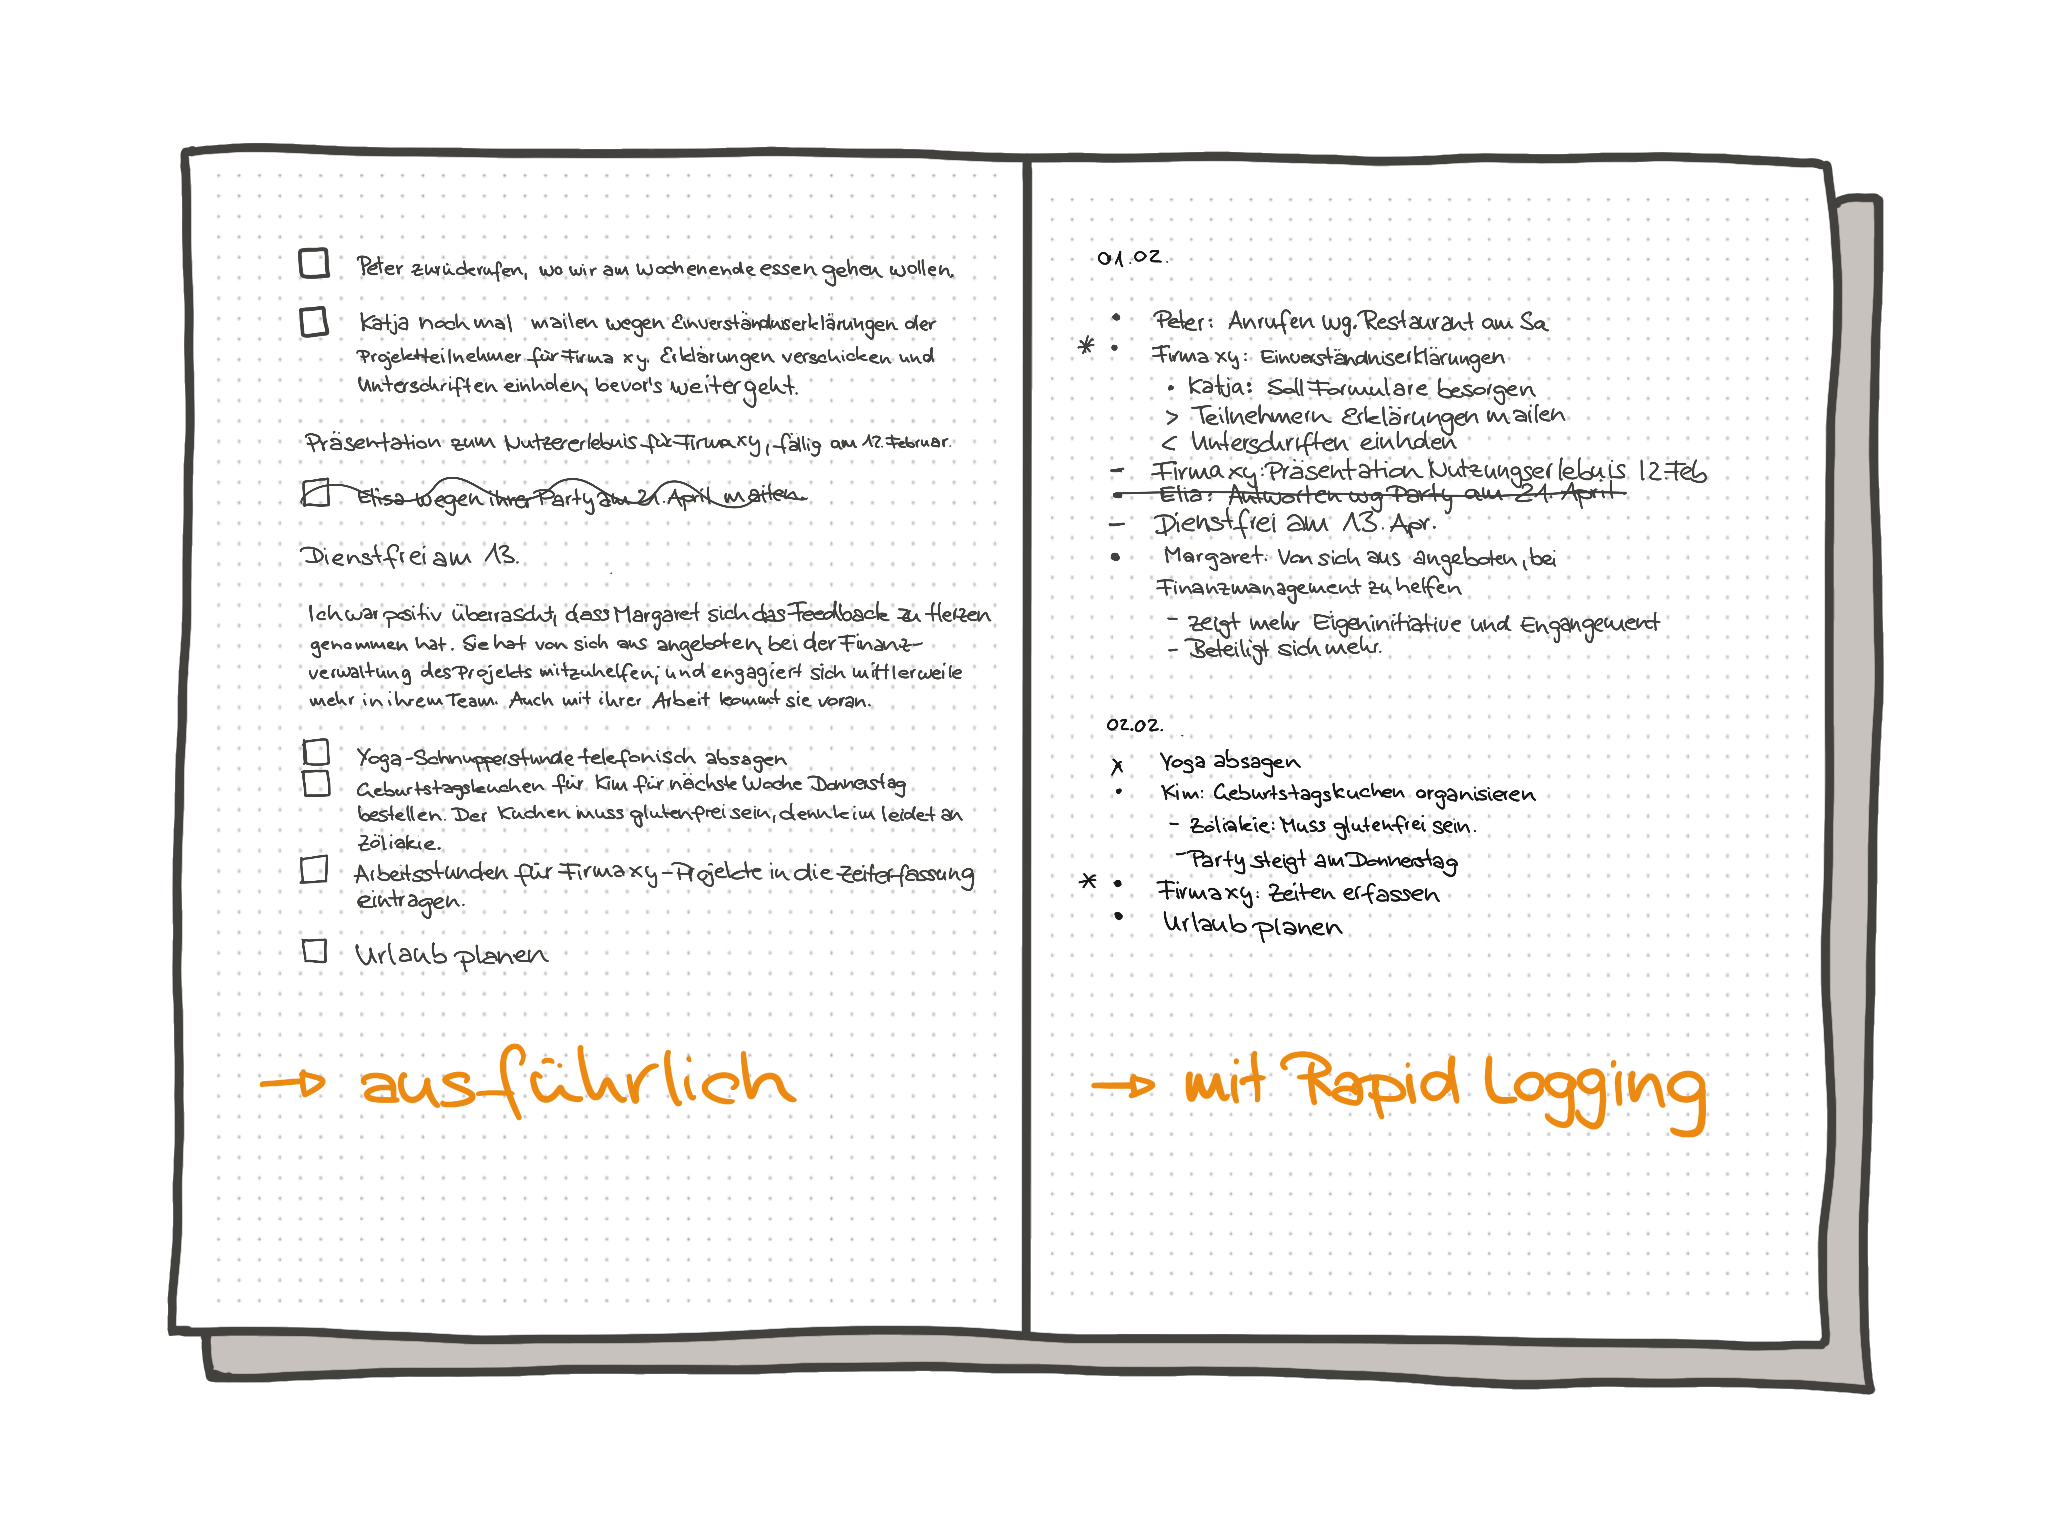 Peter zurückrufen, wo wir am Wochenende essen gehen wollen.
Katja noch mal mailen wegen Einverständniserklärungen der
Projektteilnehmer für Firma xy. Erklärungen verschicken und
Unterschriften einholen, bevor's weitergeht.
Präsentation zum Nutzererlebnis für Firma xy, fällig am 12. Februar.
Elisa wegen ihrer Party am 21. April mailen.
Dienstfrei am 13.
Ich war positiv überrascht, dass Margaret sich das Feedback zu Herzen
genommen hat. Sie hat von sich aus angeboten, bei der Finanz-
verwaltung des Projekts mitzuhelfen, und engagiert sich mittlerweile
mehr in ihrem Team. Auch mit ihrer Arbeit kommt sie voran.
Yoga-Schnupperstunde telefonisch absagen
Geburtstagskuchen für Kim für nächste Woche Donnerstag
bestellen. Der Kuchen muss glutenfrei sein, denn Kim leidet an
Zöliakie.
Arbeitsstunden für Firma xy-Projekte in die Zeiterfassung
eintragen.
Urlaub planen
→ ausführlich
01.02.
• Peter: Anrufen wg. Restaurant am Sa
* • Firma xy: Einverständniserklärungen
• Katja: Soll Formulare besorgen
> Teilnehmern Erklärungen mailen
< Unterschriften einholen
– Firma xy: Präsentation Nutzungserlebnis 12. Feb
• Elia: Antworten wg Party am 21. April
– Dienstfrei am 13. Apr.
• Margaret: Von sich aus angeboten, bei
Finanzmanagement zu helfen
– zeigt mehr Eigeninitiative und Engangement
– Beteiligt sich mehr.
02.02.
x Yoga absagen
• Kim: Geburtstagskuchen organisieren
– Zöliakie: Muss glutenfrei sein.
– Party steigt am Donnerstag
* • Firma xy: Zeiten erfassen
• Urlaub planen
→ mit Rapid Logging